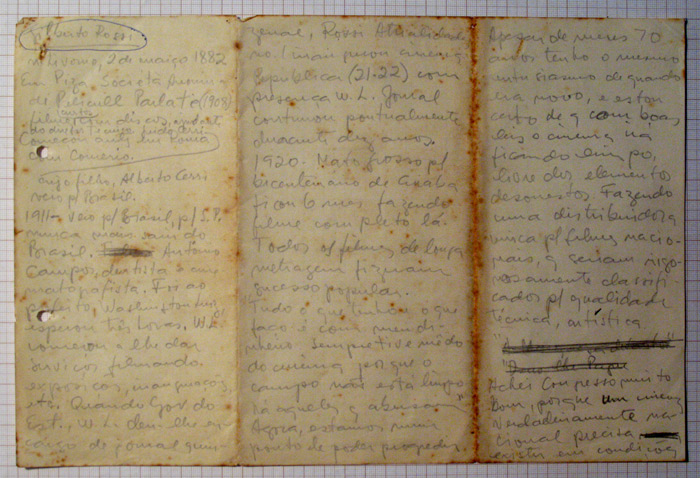 Gilberto Rossi
n. Livorno, 2 de março 1882
Em Piza Societá Anonima
de Pelicule Parlati (1908)
filmes com discos,
Começou em Roma
com Comerio.
cujo filho, Alberto Cerri
veio p/ Brasil.
1911 - veio p/ Brasil, p/ S.P.
nunca mais saiu do
Brasil. Antonio
Campos, dentista e cine-
matografista. Foi ao
prefeito, Washington Luis,
esperou três horas. W.L.
começou a lhe dar
serviços filmando
exposições, inaugurações,
etc. Quando Gov. do
Est., W.L. deu-lhe en-
cargo de jornal quin-
zenal, Rossi Atualidade
no. 1 inaugurou cinema
República (21-22) com
presença W.L. Jornal
continuou pontualmente
durante dez anos.
1920. Mato Grosso p/
bicentenario de Cuiabá
ficou 6 meses fazendo
filme completo lá.
Todos os filmes de longa
metragem fizeram
sucesso popular.
"Tudo o que tenho e o que
faço é com meu di-
nheiro. Sempre tive médo
do cinema porque o
campo não está limpo
há aqueles q abusaram"
Agora, estamos num
ponto de poder progredir.
Apezar de meus 70
anos tenho o mesmo
entusiasmo de quando
era novo, e estou
certo de q com boas
leis o cinema vá
ficando limpo,
livre dos elementos
desonestos. Fazendo
uma distribuidora
unica p/ filmes nacio-
nais, q seriam rigo-
rosamente classifi-
cados p/ qualidade
técnica, artística
Achei Congresso muito
bom, porque um cinema
verdadeiramente na-
cional precisa
existir em condições